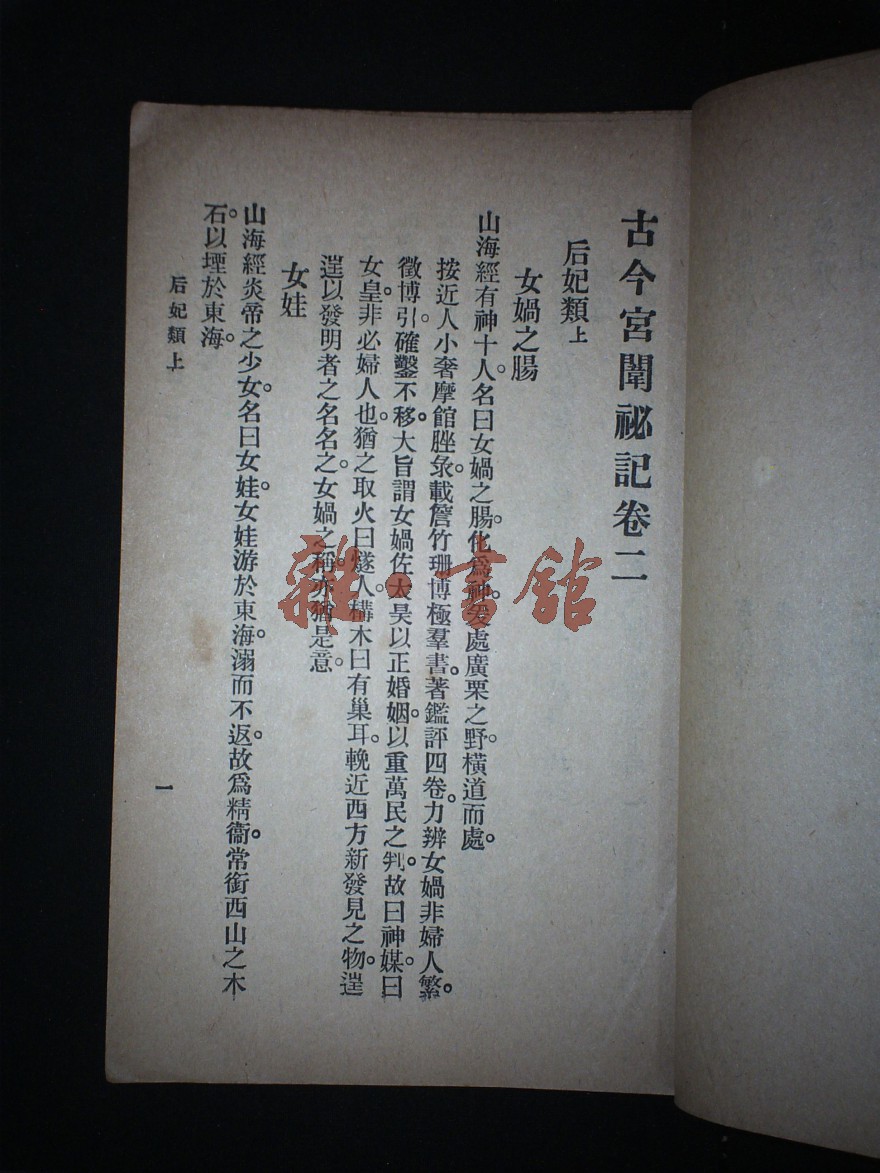 古今宮闈祕記卷二
后妃類上
女媧之腸
山海經有神十人。名曰女媧之腸。化爲神。處廣栗之野。橫道而處。
按近人小奢摩館脞彔。載詹竹珊博極羣書。著鑑評四卷。力辨女媧非婦人。繁
徵博引。確鑿不移。大旨謂女媧佐太昊以正婚姻。以重萬民之判。故曰神媒。曰
女皇。非必婦人也。猶之取火曰燧人。構木曰有巢耳。輓近西方新發見之物。逞
逞以發明者之名名之。女媧之稱。亦猶是意。
女娃
山海經炎帝之少女。名曰女娃。女娃游於東海。溺而不返。故爲精衞。常銜西山之木
石。以堙於東海。
后妃類上
一
雜·書館